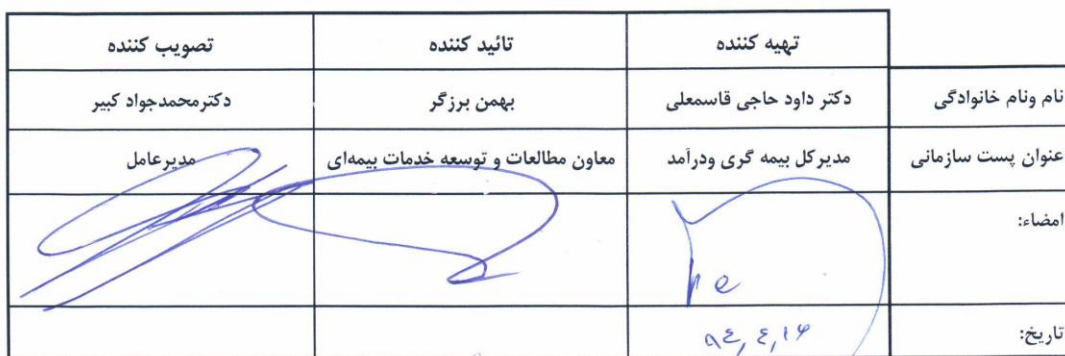 تهیه کننده تائید کننده تصویب کننده
نام ونام خانوادگی دکتر داود حاجی قاسمعلی بهمن برزگر دکترمحمدجواد کبیر
عنوان پست سازمانی مدیرکل بیمه گری ودرآمد معاون مطالعات و توسعه خدمات بیمه‌ای مدیرعامل
امضاء:
تاریخ: